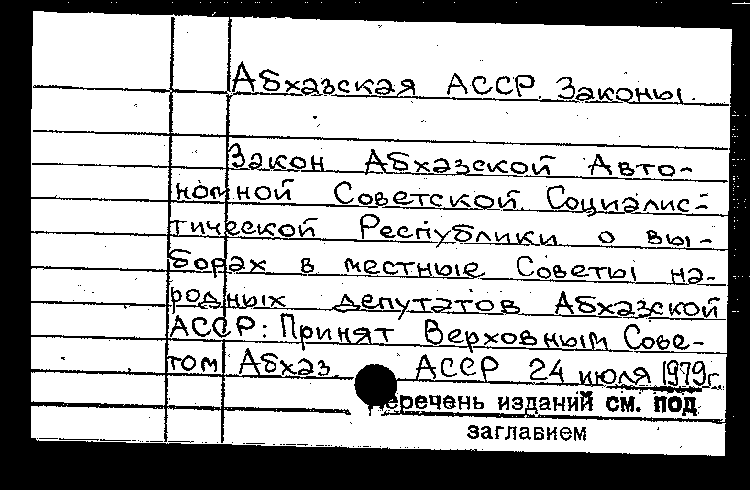 Абхазская АССР. Законы.
Закон Абхазской Авто-
номной Советской Социалис-
тической Республики о вы-
борах в местные Советы на-
родных депутатов Абхазской
АССР: Принят Верховным Сове-
том Абхаз. АССР 24 июля 1979г.
Перечень изданий см. под
заглавием